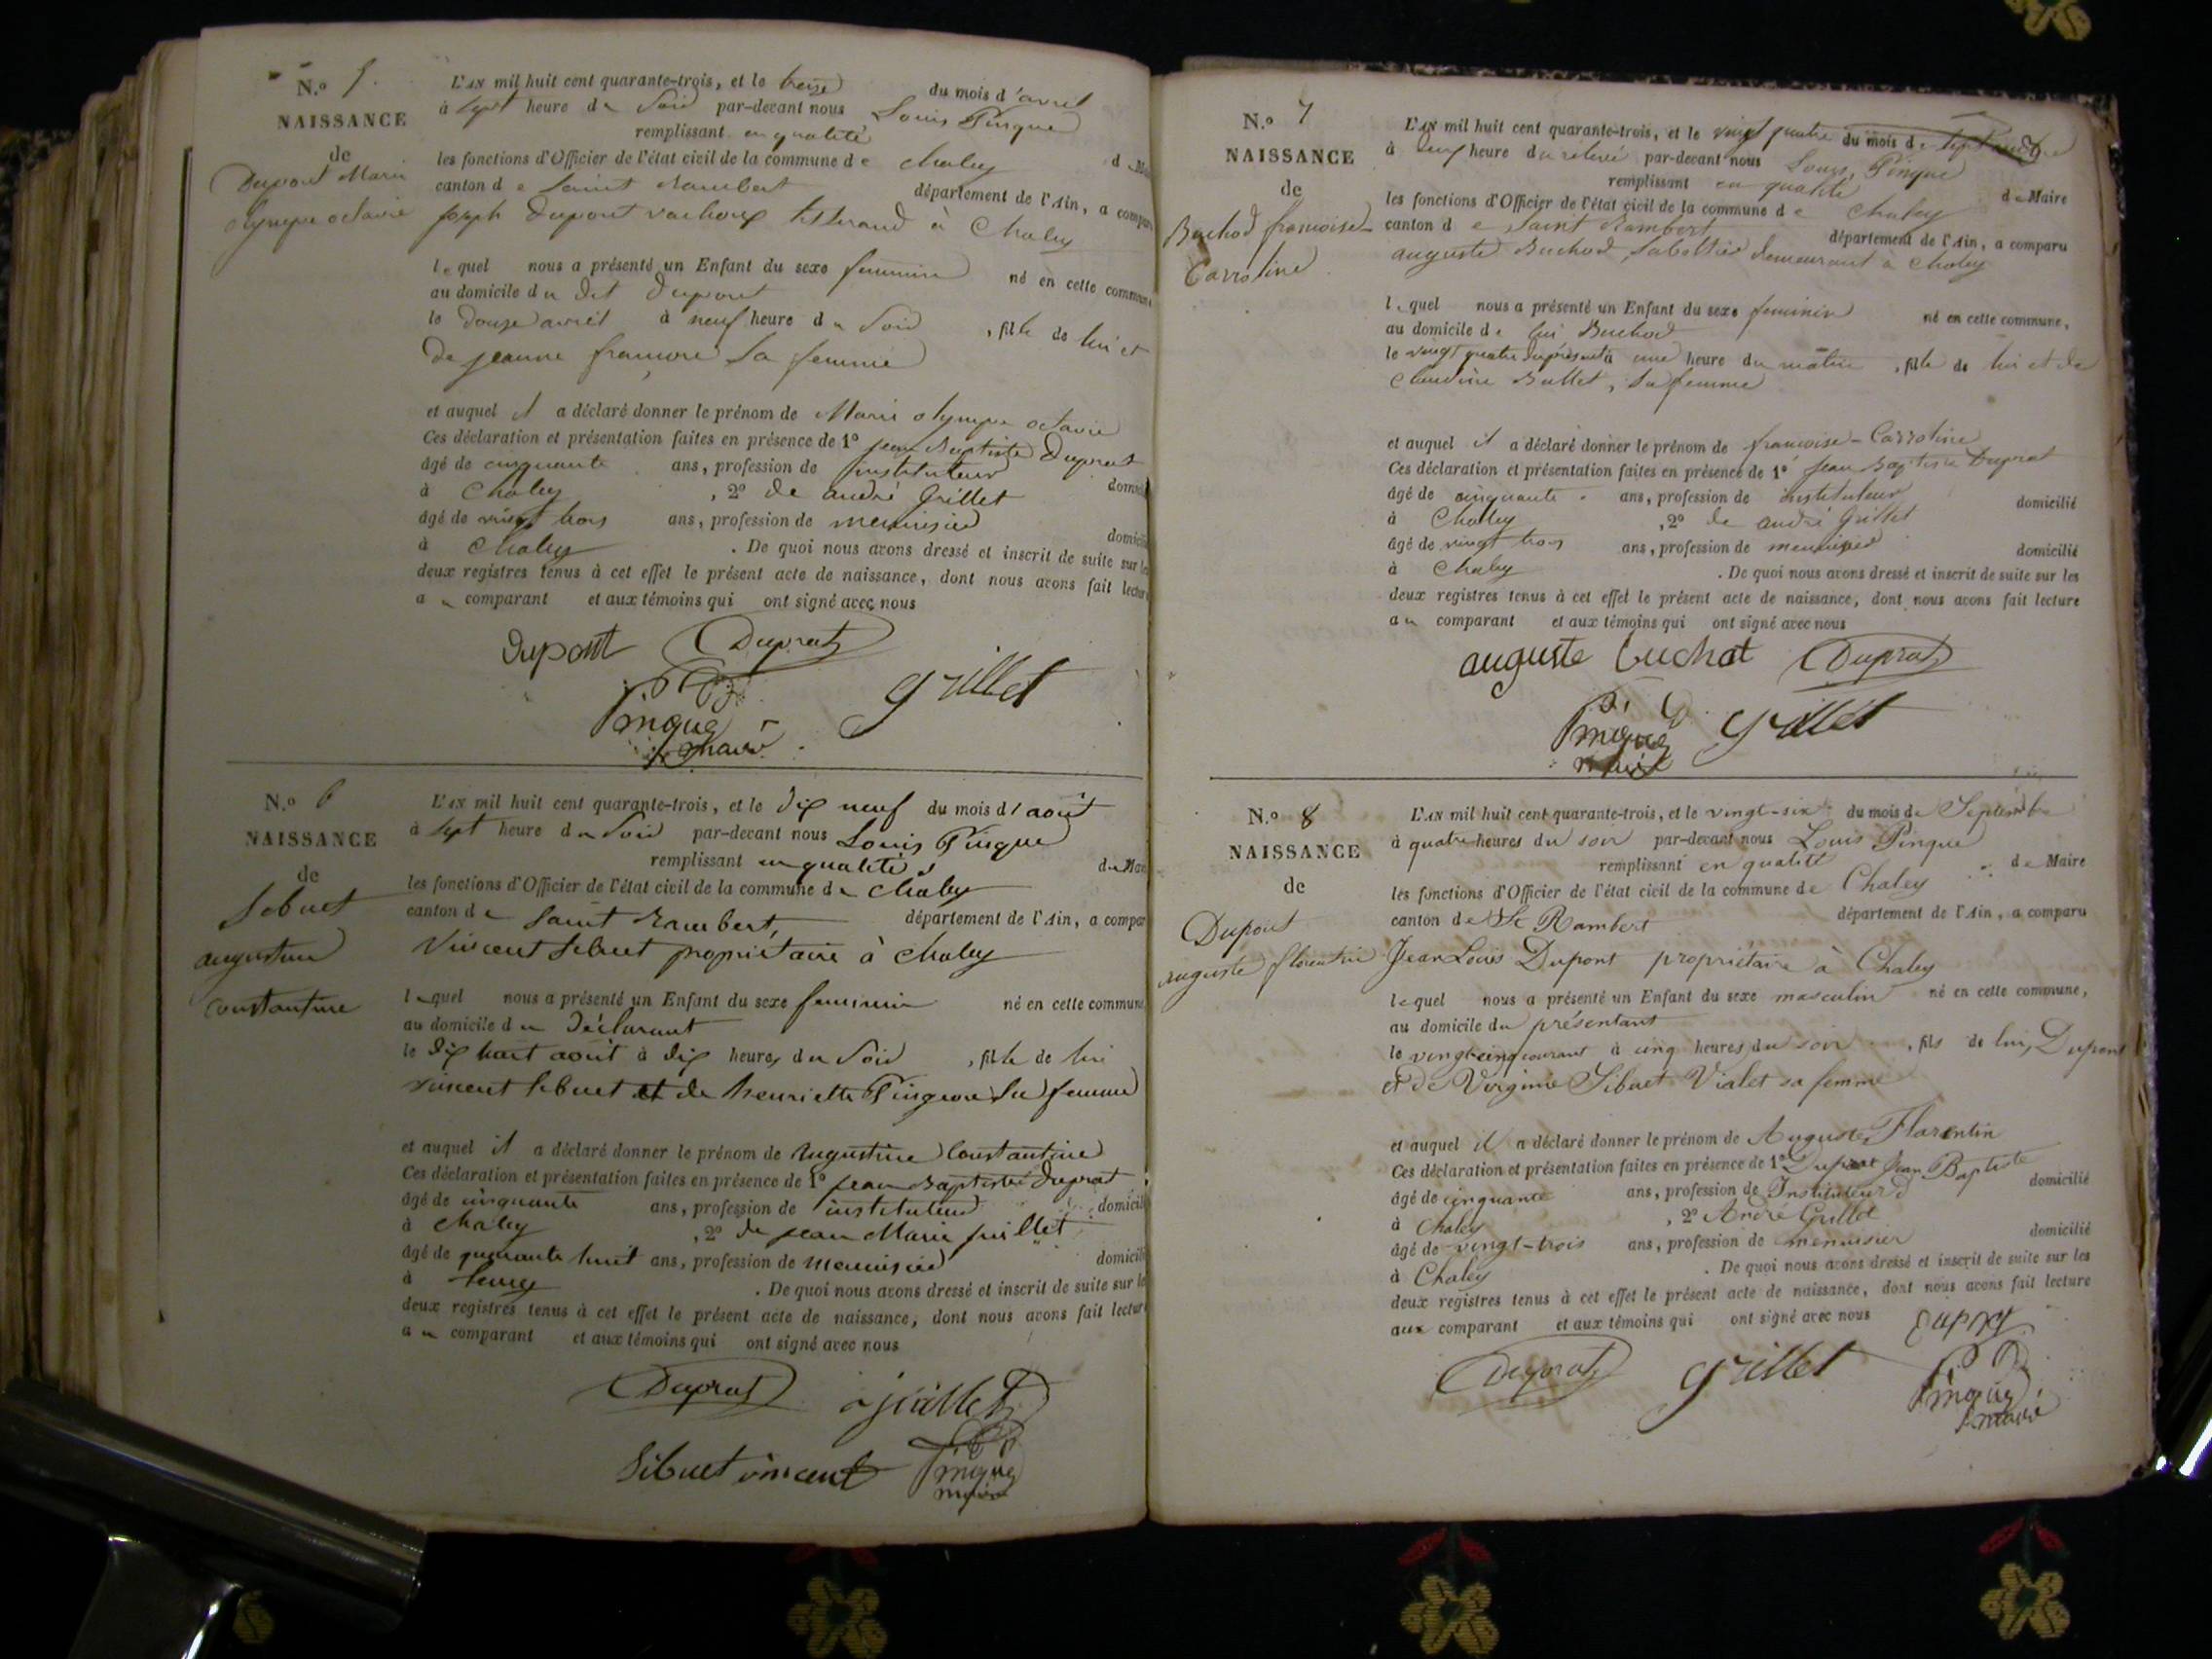 N.o 5.
NAISSANCE
de
Dupont Marie
olympe octavie
L'AN mil huit cent quarante-trois, et le treize du mois d'avril
à sept heure du Soir par-devant nous Louis Pingue
remplissant en qualité
les fonctions d'Officier de l'état civil de la commune de Chaley
canton de Saint Rambert département de l'Ain, a compar
joseph Dupont tisserand à Chaley
lequel nous a présenté un Enfant du sexe feminin né en cette commune
au domicile du dit Dupont
le douze avril à neuf heure du Soir, fille de lui et
de jeanne sa femme
et auquel il a déclaré donner le prénom de Marie olympe octavie
Ces déclaration et présentation faites en présence de 1o jean Baptiste Duprat
âgé de cinquante ans, profession de instituteur
à Chaley, 2o de andré Grillet domici
âgé de vingt trois ans, profession de menuisier
à Chaley. De quoi nous avons dressé et inscrit de suite sur les
deux registres tenus à cet effet le présent acte de naissance, dont nous avons fait lecture
au comparant et aux témoins qui ont signé avec nous
Dupont Duprat
Pingue grillet
maire
N.o 6
NAISSANCE
de
Sibuet
augustine
constantine
L'AN mil huit cent quarante-trois, et le dix neuf du mois d'août
à sept heure du Soir par-devant nous Louis Pingue
remplissant en qualité
les fonctions d'Officier de l'état civil de la commune de Chaley
canton de Saint Rambert, département de l'Ain, a compar
Vincent Sibuet propriétaire à Chaley
lequel nous a présenté un Enfant du sexe feminin né en cette commune
au domicile du déclarant
le dix huit août à dix heures du Soir, fille de lui
vincent sibuet et de henriette Pingeon sa femme
et auquel il a déclaré donner le prénom de augustine Constantine
Ces déclaration et présentation faites en présence de 1o jean Baptiste Duprat
âgé de cinquante ans, profession de instituteur domicili
à Chaley, 2o de jean Marie juillet
âgé de quarante huit ans, profession de menuisier domicili
à Tenay. De quoi nous avons dressé et inscrit de suite sur le
deux registres tenus à cet effet le présent acte de naissance, dont nous avons fait lecture
au comparant et aux témoins qui ont signé avec nous
Duprat juillet
Sibuet vincent Pingue
maire
N.o 7
NAISSANCE
de
Buchod francoise
Carroline
L'AN mil huit cent quarante-trois, et le vingt quatre du mois de septembre
à heure du par-devant nous Louis Pingue
remplissant en qualité de Maire
les fonctions d'Officier de l'état civil de la commune de Chaley
canton de Saint Rambert département de l'Ain, a comparu
auguste Buchod, sabottier demeurant à Chaley
lequel nous a présenté un Enfant du sexe feminin né en cette commune,
au domicile de lui Buchod
le vingt quatre du présent à une heure du matin, fille de lui et de
Claudine Ballet, sa femme
et auquel il a déclaré donner le prénom de francoise-Carroline
Ces déclaration et présentation faites en présence de 1o Jean Baptiste Duprat
âgé de cinquante ans, profession de instituteur domicilié
à Chaley, 2o de andré Grillet
âgé de vingt trois ans, profession de menuisier domicilié
à Chaley. De quoi nous avons dressé et inscrit de suite sur les
deux registres tenus à cet effet le présent acte de naissance, dont nous avons fait lecture
au comparant et aux témoins qui ont signé avec nous
auguste buchat Duprat
Pingue grillet
maire
N.o 8
NAISSANCE
de
Dupont
auguste florentin
L'AN mil huit cent quarante-trois, et le vingt-six du mois de Septembre
à quatre heures du soir par-devant nous Louis Pingue
remplissant en qualité de Maire
les fonctions d'Officier de l'état civil de la commune de Chaley
canton de St Rambert département de l'Ain, a comparu
Jean Louis Dupont propriétaire à Chaley
lequel nous a présenté un Enfant du sexe masculin né en cette commune,
au domicile du présentant
le vingt-cinq courant à cinq heures du soir, fils de lui, Dupont
et de Virginie Sibuet Vialet sa femme
et auquel il a déclaré donner le prénom de Auguste, Florentin
Ces déclaration et présentation faites en présence de 1o Duprat Jean Baptiste
âgé de cinquante ans, profession de Instituteur domicilié
à Chaley, 2o André Grillet
âgé de vingt-trois ans, profession de menuisier domicilié
à Chaley. De quoi nous avons dressé et inscrit de suite sur les
deux registres tenus à cet effet le présent acte de naissance, dont nous avons fait lecture
aux comparant et aux témoins qui ont signé avec nous
Duprat grillet Pingue
maire